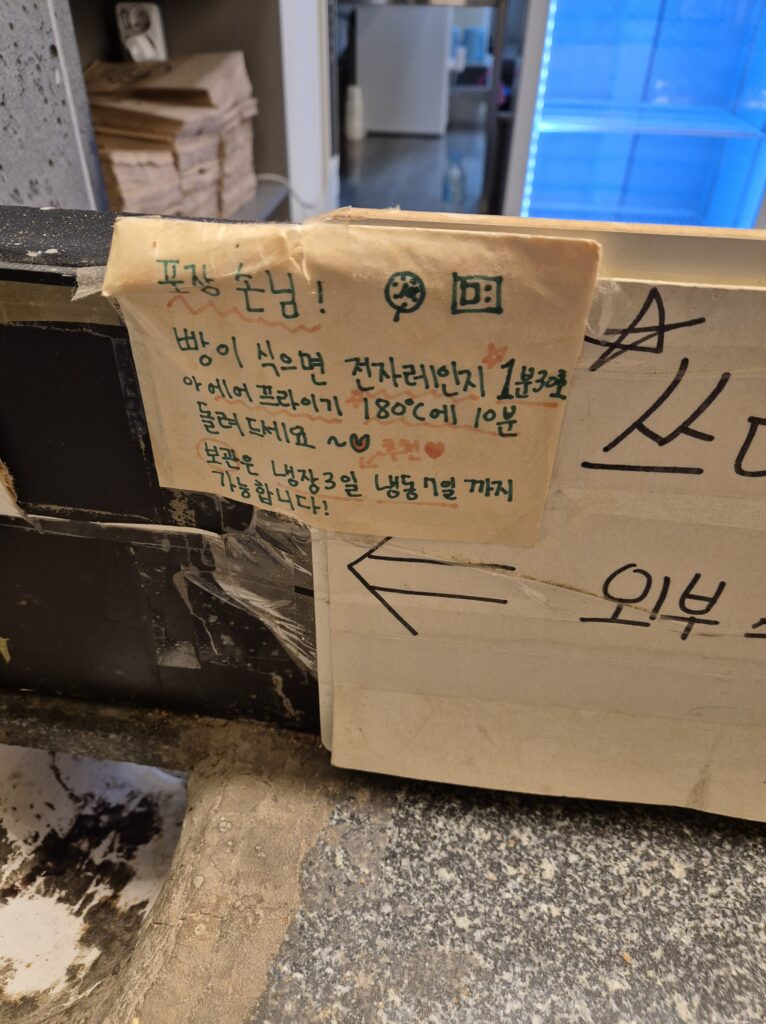 포장 손님!
빵이 식으면 전자레인지 1분30초
아 에어프라이기 180℃에 10분
돌려드세요 ~
보관은 냉장3일 냉동7일 까지
가능합니다!
외부